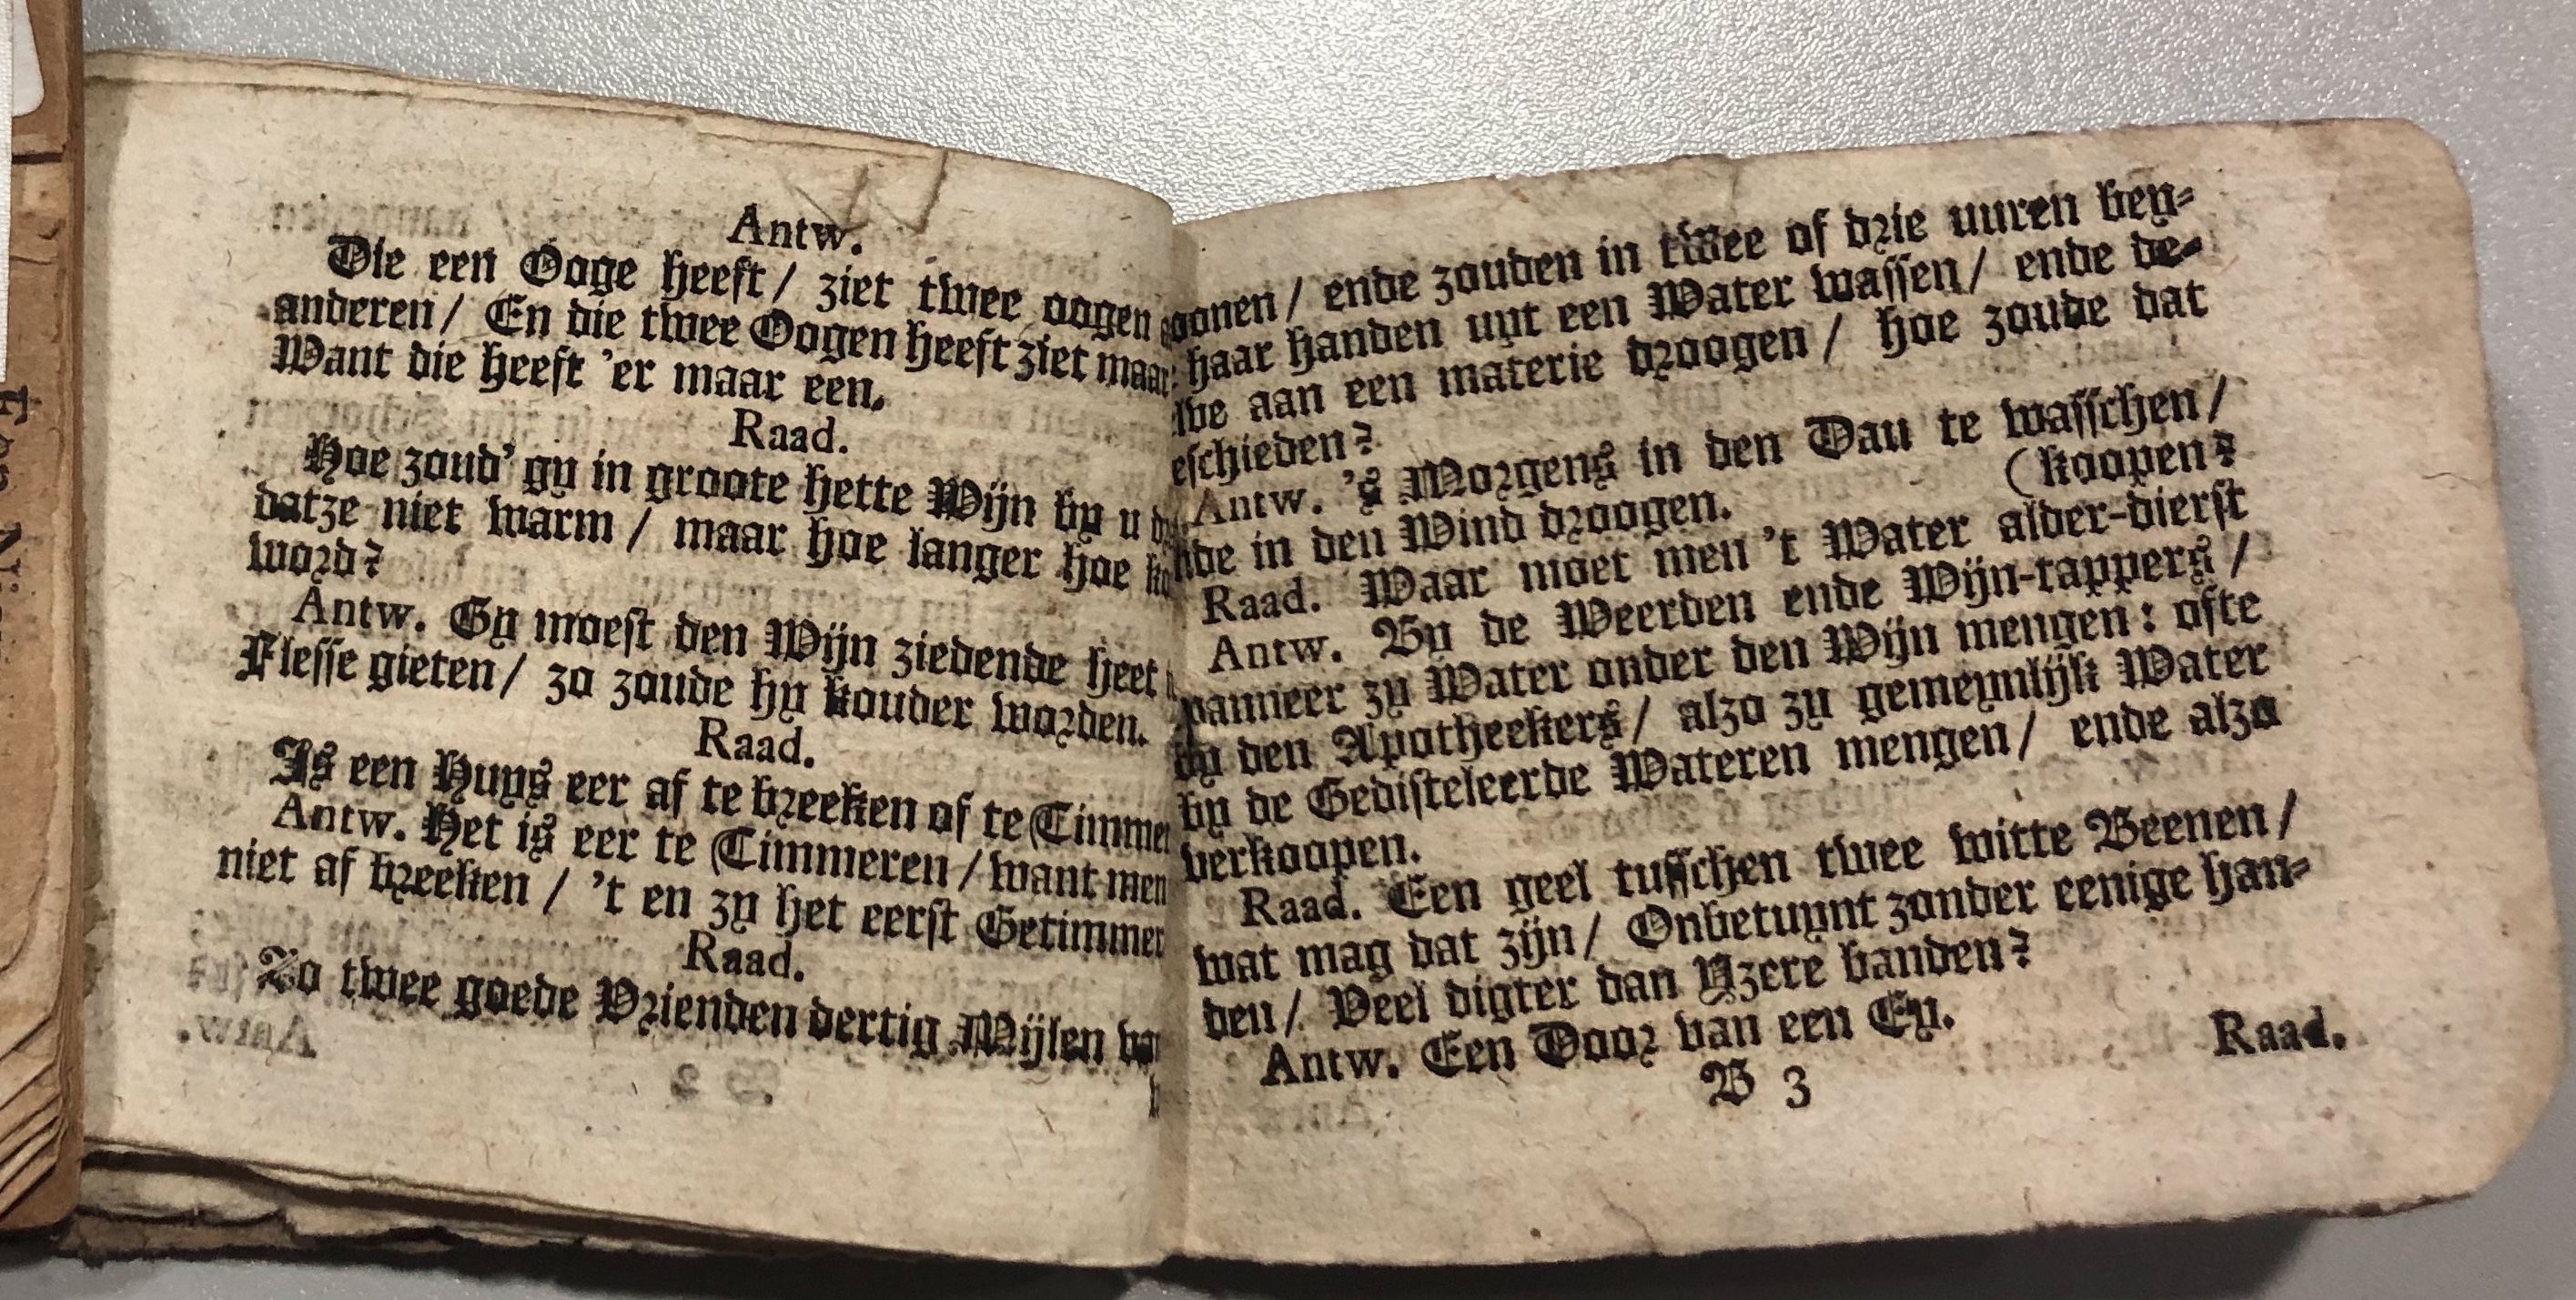 Antw.
Die een Ooge heeft / ziet twee oogen
anderen / En die twee Oogen heeft ziet maar
Want die heeft 'er maar een.
Raad.
Hoe zoud' gy in groote hette Wijn by u
datze niet warm / maar hoe langer hoe
word?
Antw. Gy moest den Wijn ziedende heet
Flesse gieten / zo zoude hy kouder worden.
Raad.
Is een Huys eer af te breeken of te Timmer
Antw. Het is eer te Timmeren / want men
niet af breeken / 't en zy het eerst Getimmer
Raad.
Zo twee goede Vrienden dertig Mijlen
oonen / ende zouden in twee of drie uuren bey-
haar handen uyt een Water wassen / ende de-
lve aan een materie droogen / hoe zoude dat
eschieden?
Antw. 's Morgens in den Dau te wasschen /
nde in den Wind droogen. (koopen?
Raad. Waar moet men 't Water alder-dierst
Antw. By de Weerden ende Wijn-tappers /
wanneer zy Water onder den Wijn mengen: ofte
by den Apotheekers / alzo zy gemeynlijk Water
by de Gedisteleerde Wateren mengen / ende alzo
verkoopen.
Raad. Een geel tusschen twee witte Beenen /
wat mag dat zijn / Onbetuynt zonder eenige han-
den / Veel digter dan Yzere banden?
Antw. Een Door van een Ey.
B 3
Raad.